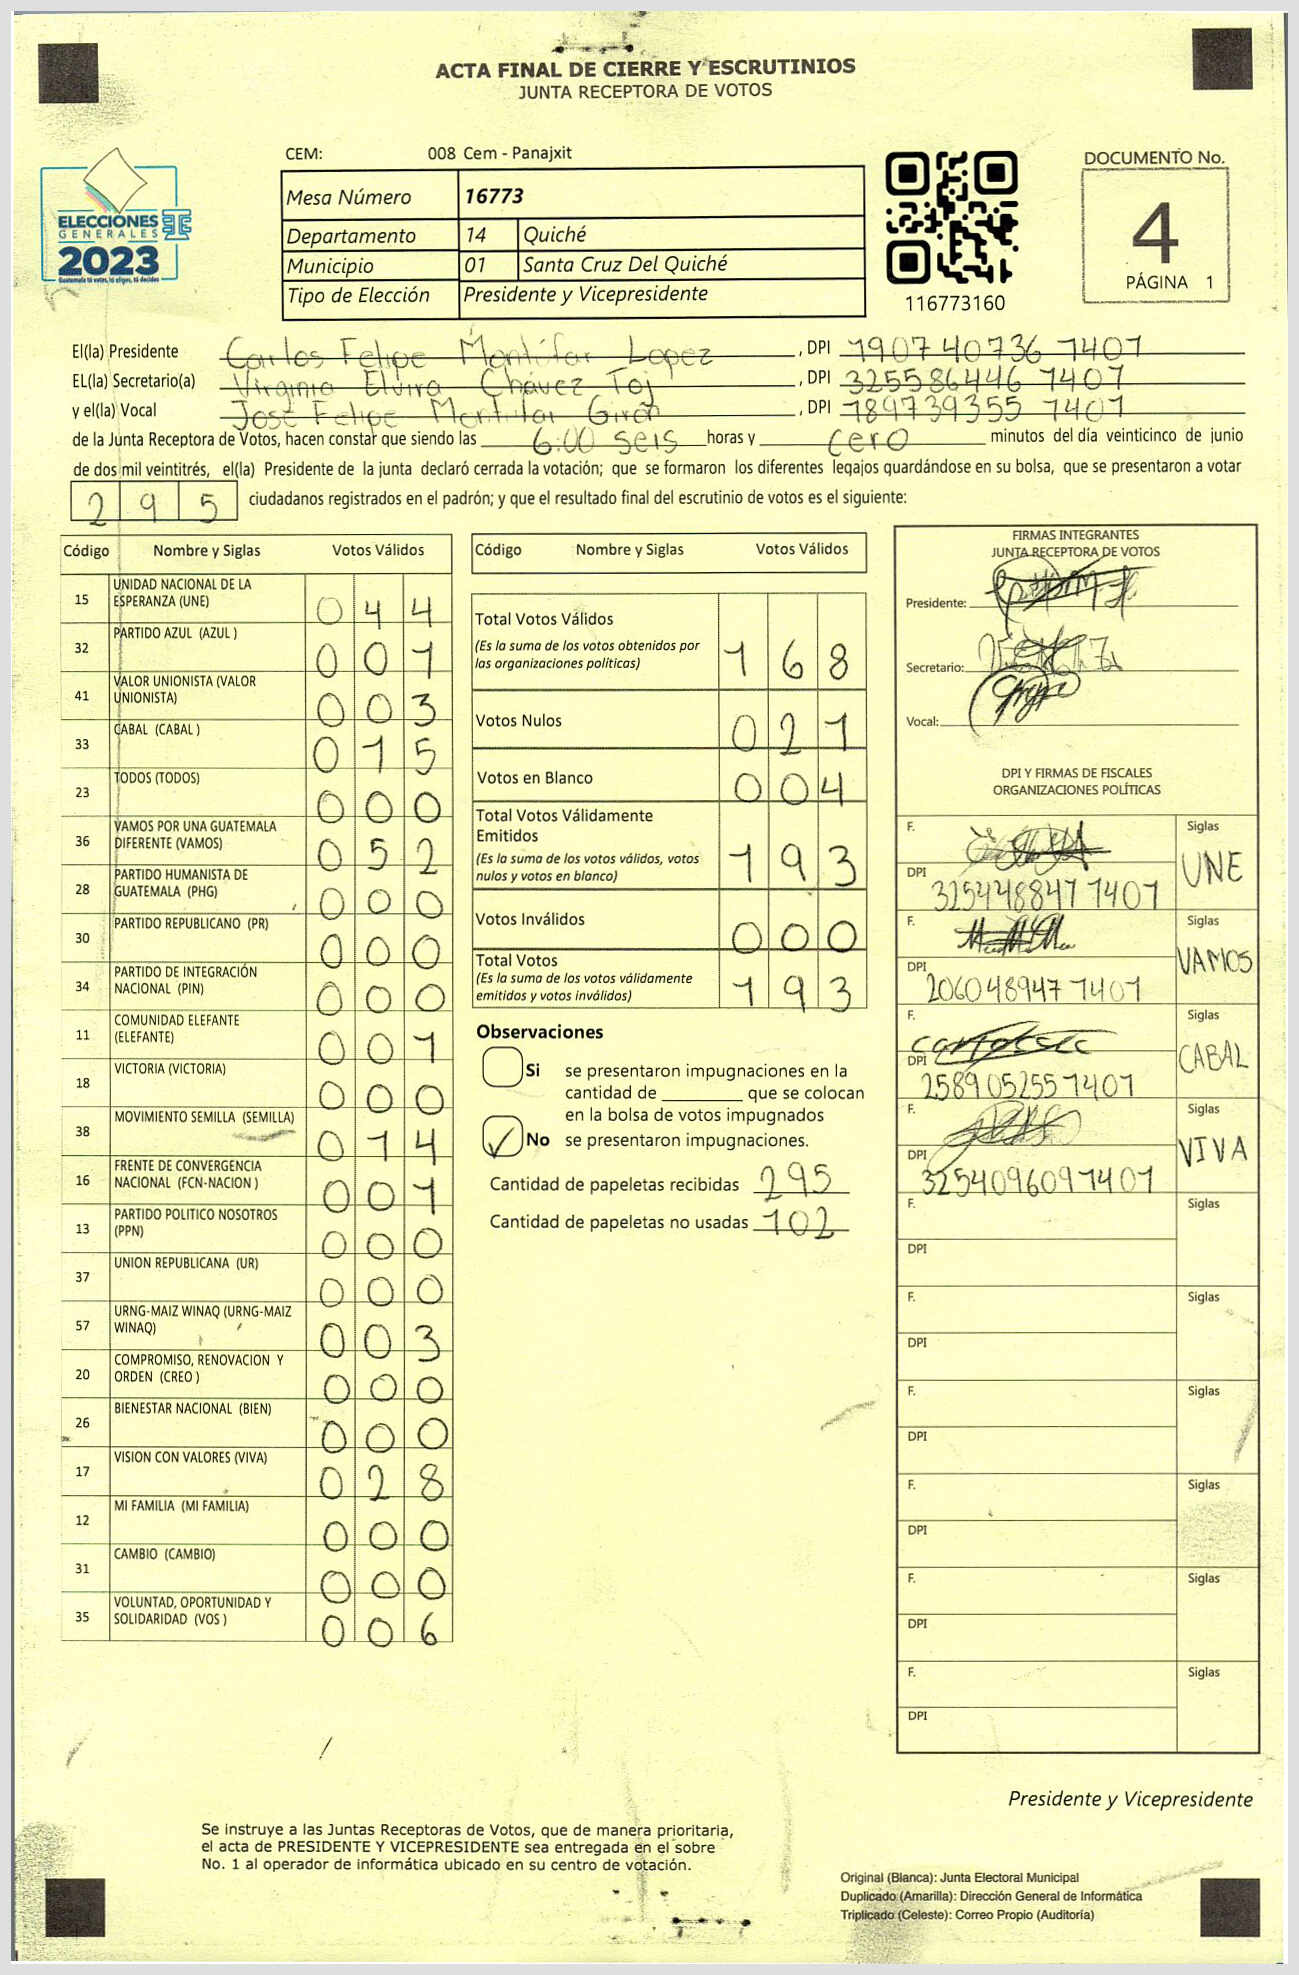 ACTA FINAL DE CIERRE Y ESCRUTINIOS
JUNTA RECEPTORA DE VOTOS
CEM: 008 Cem - Panajxit
ELECCIONES
GENERALES
2023
Guatemala tú votas, tú eliges, tú decides
Mesa Número 16773
Departamento 14 Quiché
Municipio 01 Santa Cruz Del Quiché
Tipo de Elección Presidente y Vicepresidente
116773160
DOCUMENTO No.
4
PÁGINA 1
El(la) Presidente Carlos Felipe Montúfar Lopez, DPI 190740736 1401
EL(la) Secretario(a) Virginia Elvira Chávez Toj, DPI 325586446 1401
y el(la) Vocal José Felipe Montúfar Girón, DPI 189739355 1401
de la Junta Receptora de Votos, hacen constar que siendo las 6:00 seis horas y cero minutos del día veinticinco de junio
de dos mil veintitrés, el(la) Presidente de la junta declaró cerrada la votación; que se formaron los diferentes legajos guardándose en su bolsa, que se presentaron a votar
295 ciudadanos registrados en el padrón; y que el resultado final del escrutinio de votos es el siguiente:
Código Nombre y Siglas Votos Válidos
15 UNIDAD NACIONAL DE LA ESPERANZA (UNE) 044
32 PARTIDO AZUL (AZUL ) 001
41 VALOR UNIONISTA (VALOR UNIONISTA) 003
33 CABAL (CABAL ) 015
23 TODOS (TODOS) 000
36 VAMOS POR UNA GUATEMALA DIFERENTE (VAMOS) 052
28 PARTIDO HUMANISTA DE GUATEMALA (PHG) 000
30 PARTIDO REPUBLICANO (PR) 000
34 PARTIDO DE INTEGRACIÓN NACIONAL (PIN) 000
11 COMUNIDAD ELEFANTE (ELEFANTE) 001
18 VICTORIA (VICTORIA) 000
38 MOVIMIENTO SEMILLA (SEMILLA) 014
16 FRENTE DE CONVERGENCIA NACIONAL (FCN-NACION ) 001
13 PARTIDO POLITICO NOSOTROS (PPN) 000
37 UNION REPUBLICANA (UR) 000
57 URNG-MAIZ WINAQ (URNG-MAIZ WINAQ) 003
20 COMPROMISO, RENOVACION Y ORDEN (CREO ) 000
26 BIENESTAR NACIONAL (BIEN) 000
17 VISION CON VALORES (VIVA) 028
12 MI FAMILIA (MI FAMILIA) 000
31 CAMBIO (CAMBIO) 000
35 VOLUNTAD, OPORTUNIDAD Y SOLIDARIDAD (VOS ) 006
Código Nombre y Siglas Votos Válidos
Total Votos Válidos 168
(Es la suma de los votos obtenidos por
las organizaciones políticas)
Votos Nulos 021
Votos en Blanco 004
Total Votos Válidamente
Emitidos 193
(Es la suma de los votos válidos, votos
nulos y votos en blanco)
Votos Inválidos 000
Total Votos 193
(Es la suma de los votos válidamente
emitidos y votos inválidos)
Observaciones
Si se presentaron impugnaciones en la
cantidad de ________ que se colocan
en la bolsa de votos impugnados
No se presentaron impugnaciones.
Cantidad de papeletas recibidas 295
Cantidad de papeletas no usadas 102
FIRMAS INTEGRANTES
JUNTA RECEPTORA DE VOTOS
Presidente:
Secretario:
Vocal:
DPI Y FIRMAS DE FISCALES
ORGANIZACIONES POLÍTICAS
F. Siglas
DPI 325448847 1401 UNE
F. Siglas
DPI 206048947 1401 VAMOS
F. Siglas
DPI 258905255 1401 CABAL
F. Siglas
DPI 325409609 1401 VIVA
F. Siglas
DPI
F. Siglas
DPI
F. Siglas
DPI
F. Siglas
DPI
F. Siglas
DPI
F. Siglas
DPI
Presidente y Vicepresidente
Se instruye a las Juntas Receptoras de Votos, que de manera prioritaria,
el acta de PRESIDENTE Y VICEPRESIDENTE sea entregada en el sobre
No. 1 al operador de informática ubicado en su centro de votación.
Original (Blanca): Junta Electoral Municipal
Duplicado (Amarilla): Dirección General de Informática
Triplicado (Celeste): Correo Propio (Auditoría)